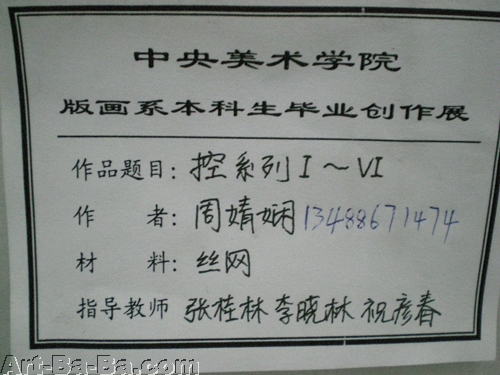 中央美术学院
版画系本科生毕业创作展
作品题目：控系列 I～VI
作 者：周婧娴 13488671474
材 料：丝网
指导教师 张桂林 李晓林 祝彦春
Art-Ba-Ba.com